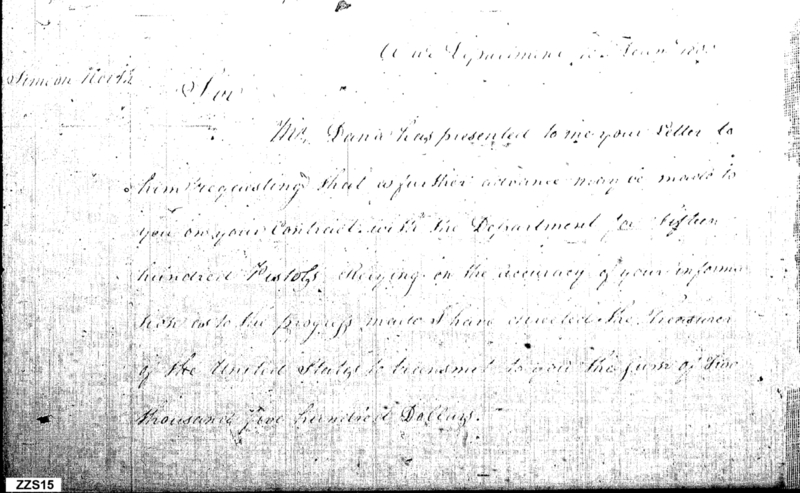 War Department
Simeon North
Sir
Mr. Dana has presented to me your letter to
him requesting that a further advance may be made to
you on your Contract with the Department for fifteen
hundred Pistols. Relying on the accuracy of your informa
tion as to the progress made I have directed the Treasurer
of the United States to transmit to you the sum of Two
thousand five hundred Dollars.
ZZS15